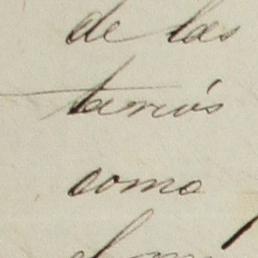 de las
tarios
como